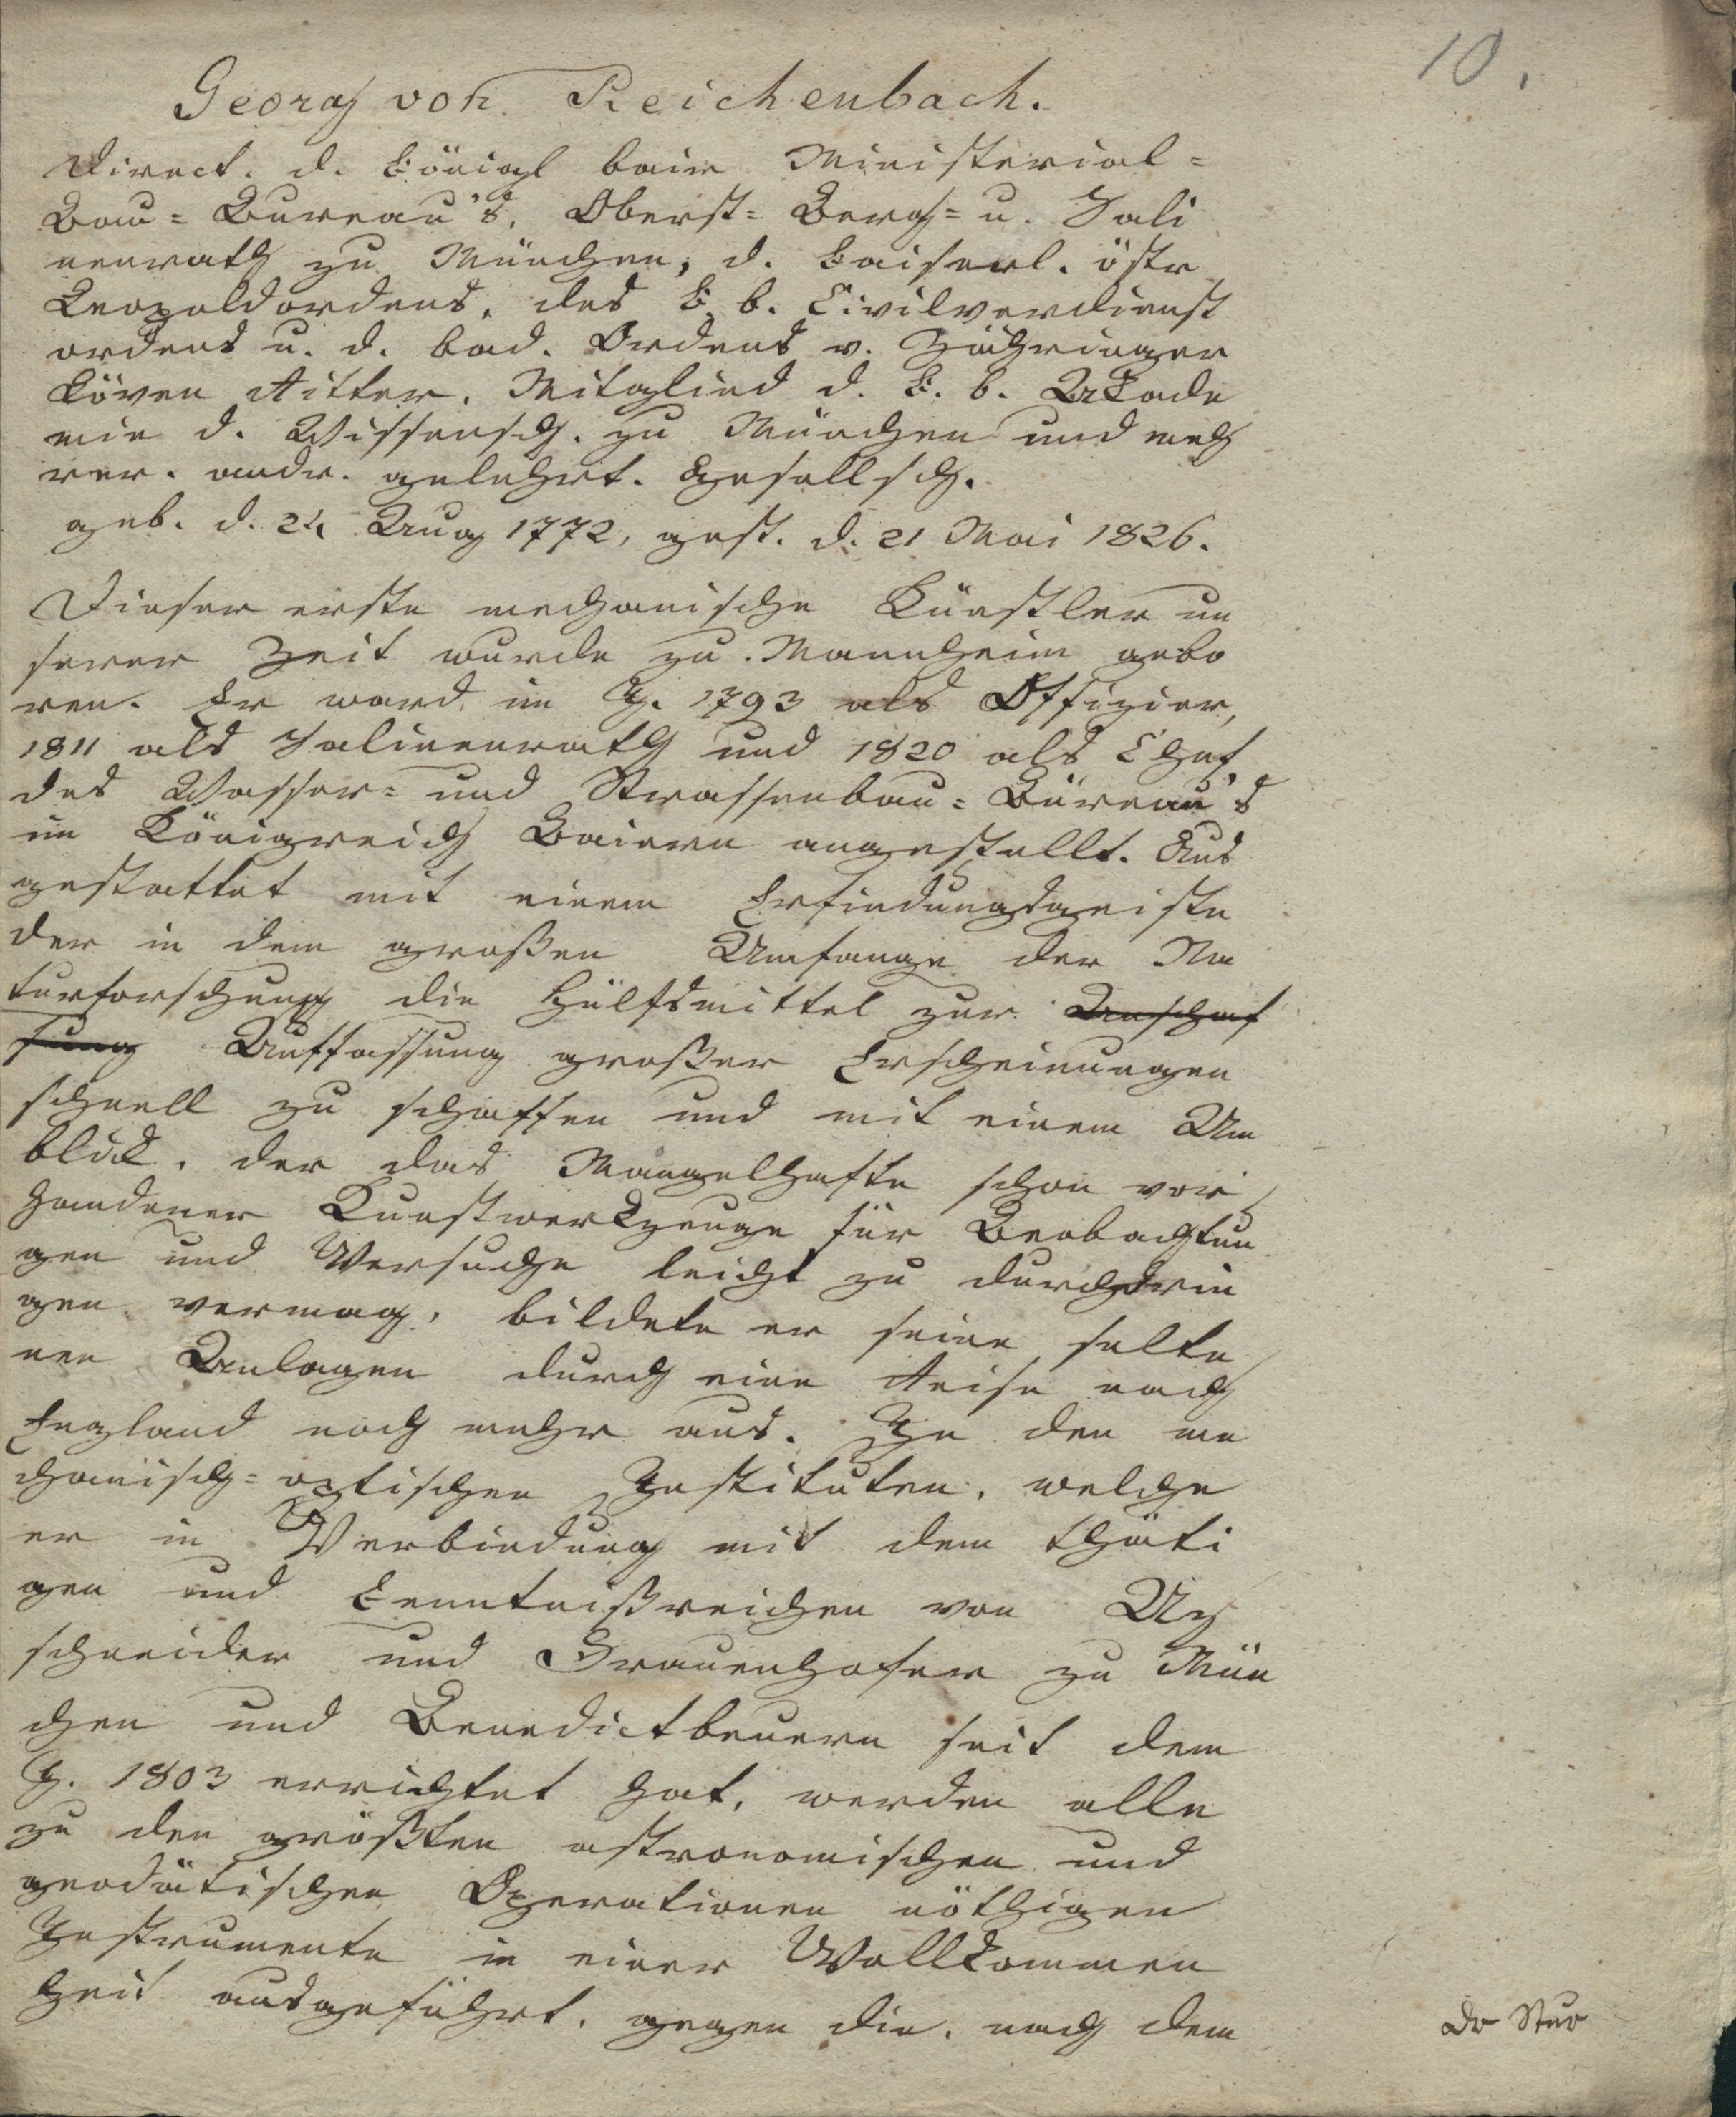 10.
Georg von Reichenbach.
Direct. d. königl baier Ministerial-
Bau-Bureau's, Oberst-Berg- u. Sali
nenrath zu München, d. kaiserl. östr
Leopoldordens, des k. b. Civilverdienst
ordens u. d. bad. Ordens v. Zähringer
Löwen Ritter, Mitglied d. k. b. Akade
mie d. Wissensch. zu München und meh
rer. andr. gelehrt. Gesellsch.
geb. d. 24 Aug 1772, gest. d. 21 Mai 1826.
Dieser erste mechanische Künstler un
serer Zeit wurde zu Mannheim gebo
ren. Er ward im J. 1793 als Offizier,
1811 als Salinenrath und 1820 als Chef
des Wasser- und Strassenbau-Büreau's
im Königreich Baiern angestellt. Aus
gestattet mit einem Erfindungsgeiste
der in dem großen Umfange der Na
turforschung die Hülfsmittel zur Anschaf
fung Auffassung großer Erscheinungen
schnell zu schaffen und mit einem Um
blick, der das Mangelhafte schon vor
handener Kunstwerkzeuge für Beobachtun
gen und Versuche leicht zu durchdrin
gen vermag, bildete er seine selte
nen Anlagen durch eine Reise nach
England noch mehr aus. In den me
chanisch-optischen Instituten, welche
er in Verbindung mit dem thäti
gen und kenntnißreichen von Uz
schneider und Frauenhofer zu Mün
chen und Benedictbeuern seit dem
J. 1803 errichtet hat, werden alle
zu den größten astronomischen und
geodätischen Operationen nöthigen
Instrumente in einer Vollkommen
heit ausgeführt, gegen die, nach dem